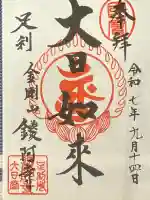 奉拝
令和七年九月十四日
大日如来
足利
金剛山
鑁阿寺